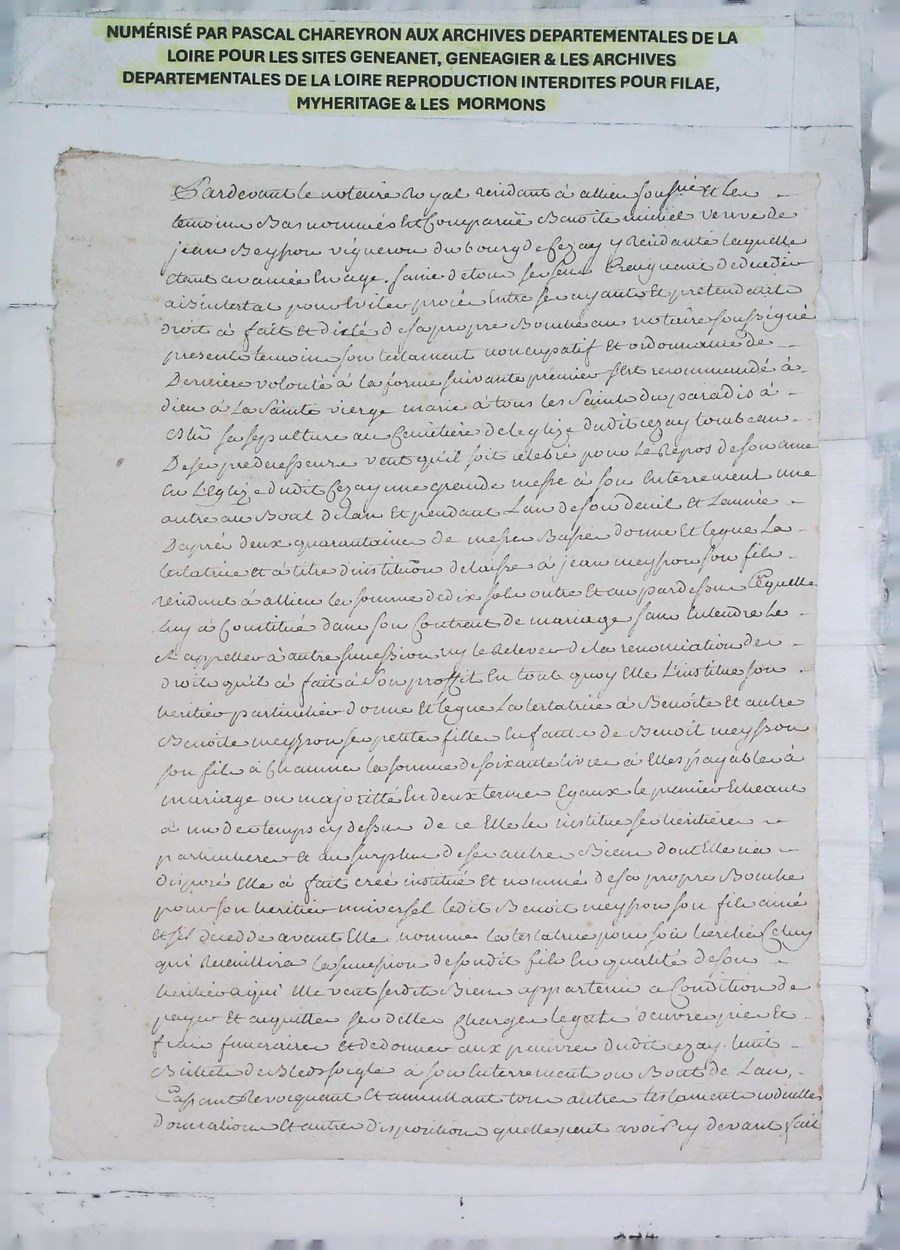 NUMÉRISÉ PAR PASCAL CHAREYRON AUX ARCHIVES DEPARTEMENTALES DE LA
LOIRE POUR LES SITES GENEANET, GENEAGIER & LES ARCHIVES
DEPARTEMENTALES DE LA LOIRE REPRODUCTION INTERDITES POUR FILAE,
MYHERITAGE & LES MORMONS
Pardevant le notaire Royal residant à allieu sousné Et les
temoins Bas nommés Est Comparüe Benoite veuve de
jean Meysson vigneron du bourg de Cezay y Residante laquelle
etant avancée En age, saine de tous ses sens Craignant de deceder
abintestat pour Eviter procès Entre ses ayants Et pretendants
droit à fait Et dicté de sa propre Bouche au notaire soussigné
presents temoins son testament noncupatif Et ordonnance de
Derniere volonté à la forme suivante premier s'est recommandé à
dieu à La Sainte vierge marie à tous les Saints du paradis à
Elu sa sepulture au Cemitière de leglize dudit cezay tombeau
De ses predecesseurs veut qu'il soit celebré pour Le Repos de son ame
En L'Eglize dudit Cezay une grande messe à son Enterrement une
autre au Bout de lan Et pendant Lan de son deuil Et L'année
D'après deux quarantaine de messes Basses donne Et legue La
testatrice et à titre d'institution delaisse à jean meysson son fils
residant à allieu la somme de dix sols outre Et au pardessus Ce quelle
luy à Constitué dans son Contrat de mariage sans Entendre Le
Rappeller à autre succession ny le Relever de la renonciation des
droits qu'il à fait à son proffit En tout quoy Elle L'institue son
heritier particulier donne Et legue La testatrice à Benoite Et autre
Benoite meysson ses petites filles Enfants de Benoit meysson
son fils à Chacune la somme de soixante livres à Elles payables à
mariage ou majoritté En deux termes Egaux le premier Echeant
à un des temps cy dessus de ce Elle les institue ses heritieres
particulieres Et au surplus de ses autres Biens dont Elle n'a
disposé Elle à fait creé institué Et nommé de sa propre Bouche
pour son heritier universel ledit Benoit meysson son fils ainé
Et s'il decedde avant Elle nomme la testatrice pour son heritier Celuy
qui Recueillira la succession de sondit fils En qualité de son
heritier à qui Elle veut sesdits Biens appartenir à Condition de
payer Et acquitter ses dettes Charges legats d'œuvres pies Et
frais funeraires Et de donner aux pauvres dudit cezay huit
Bichets de Bled soigle à son Enterrement ou Bout de Lan,
Cassant Revocquent Et annullant tous autres testaments codicilles
donnations Et autres dispositions quelle peut avoir cy devant fait